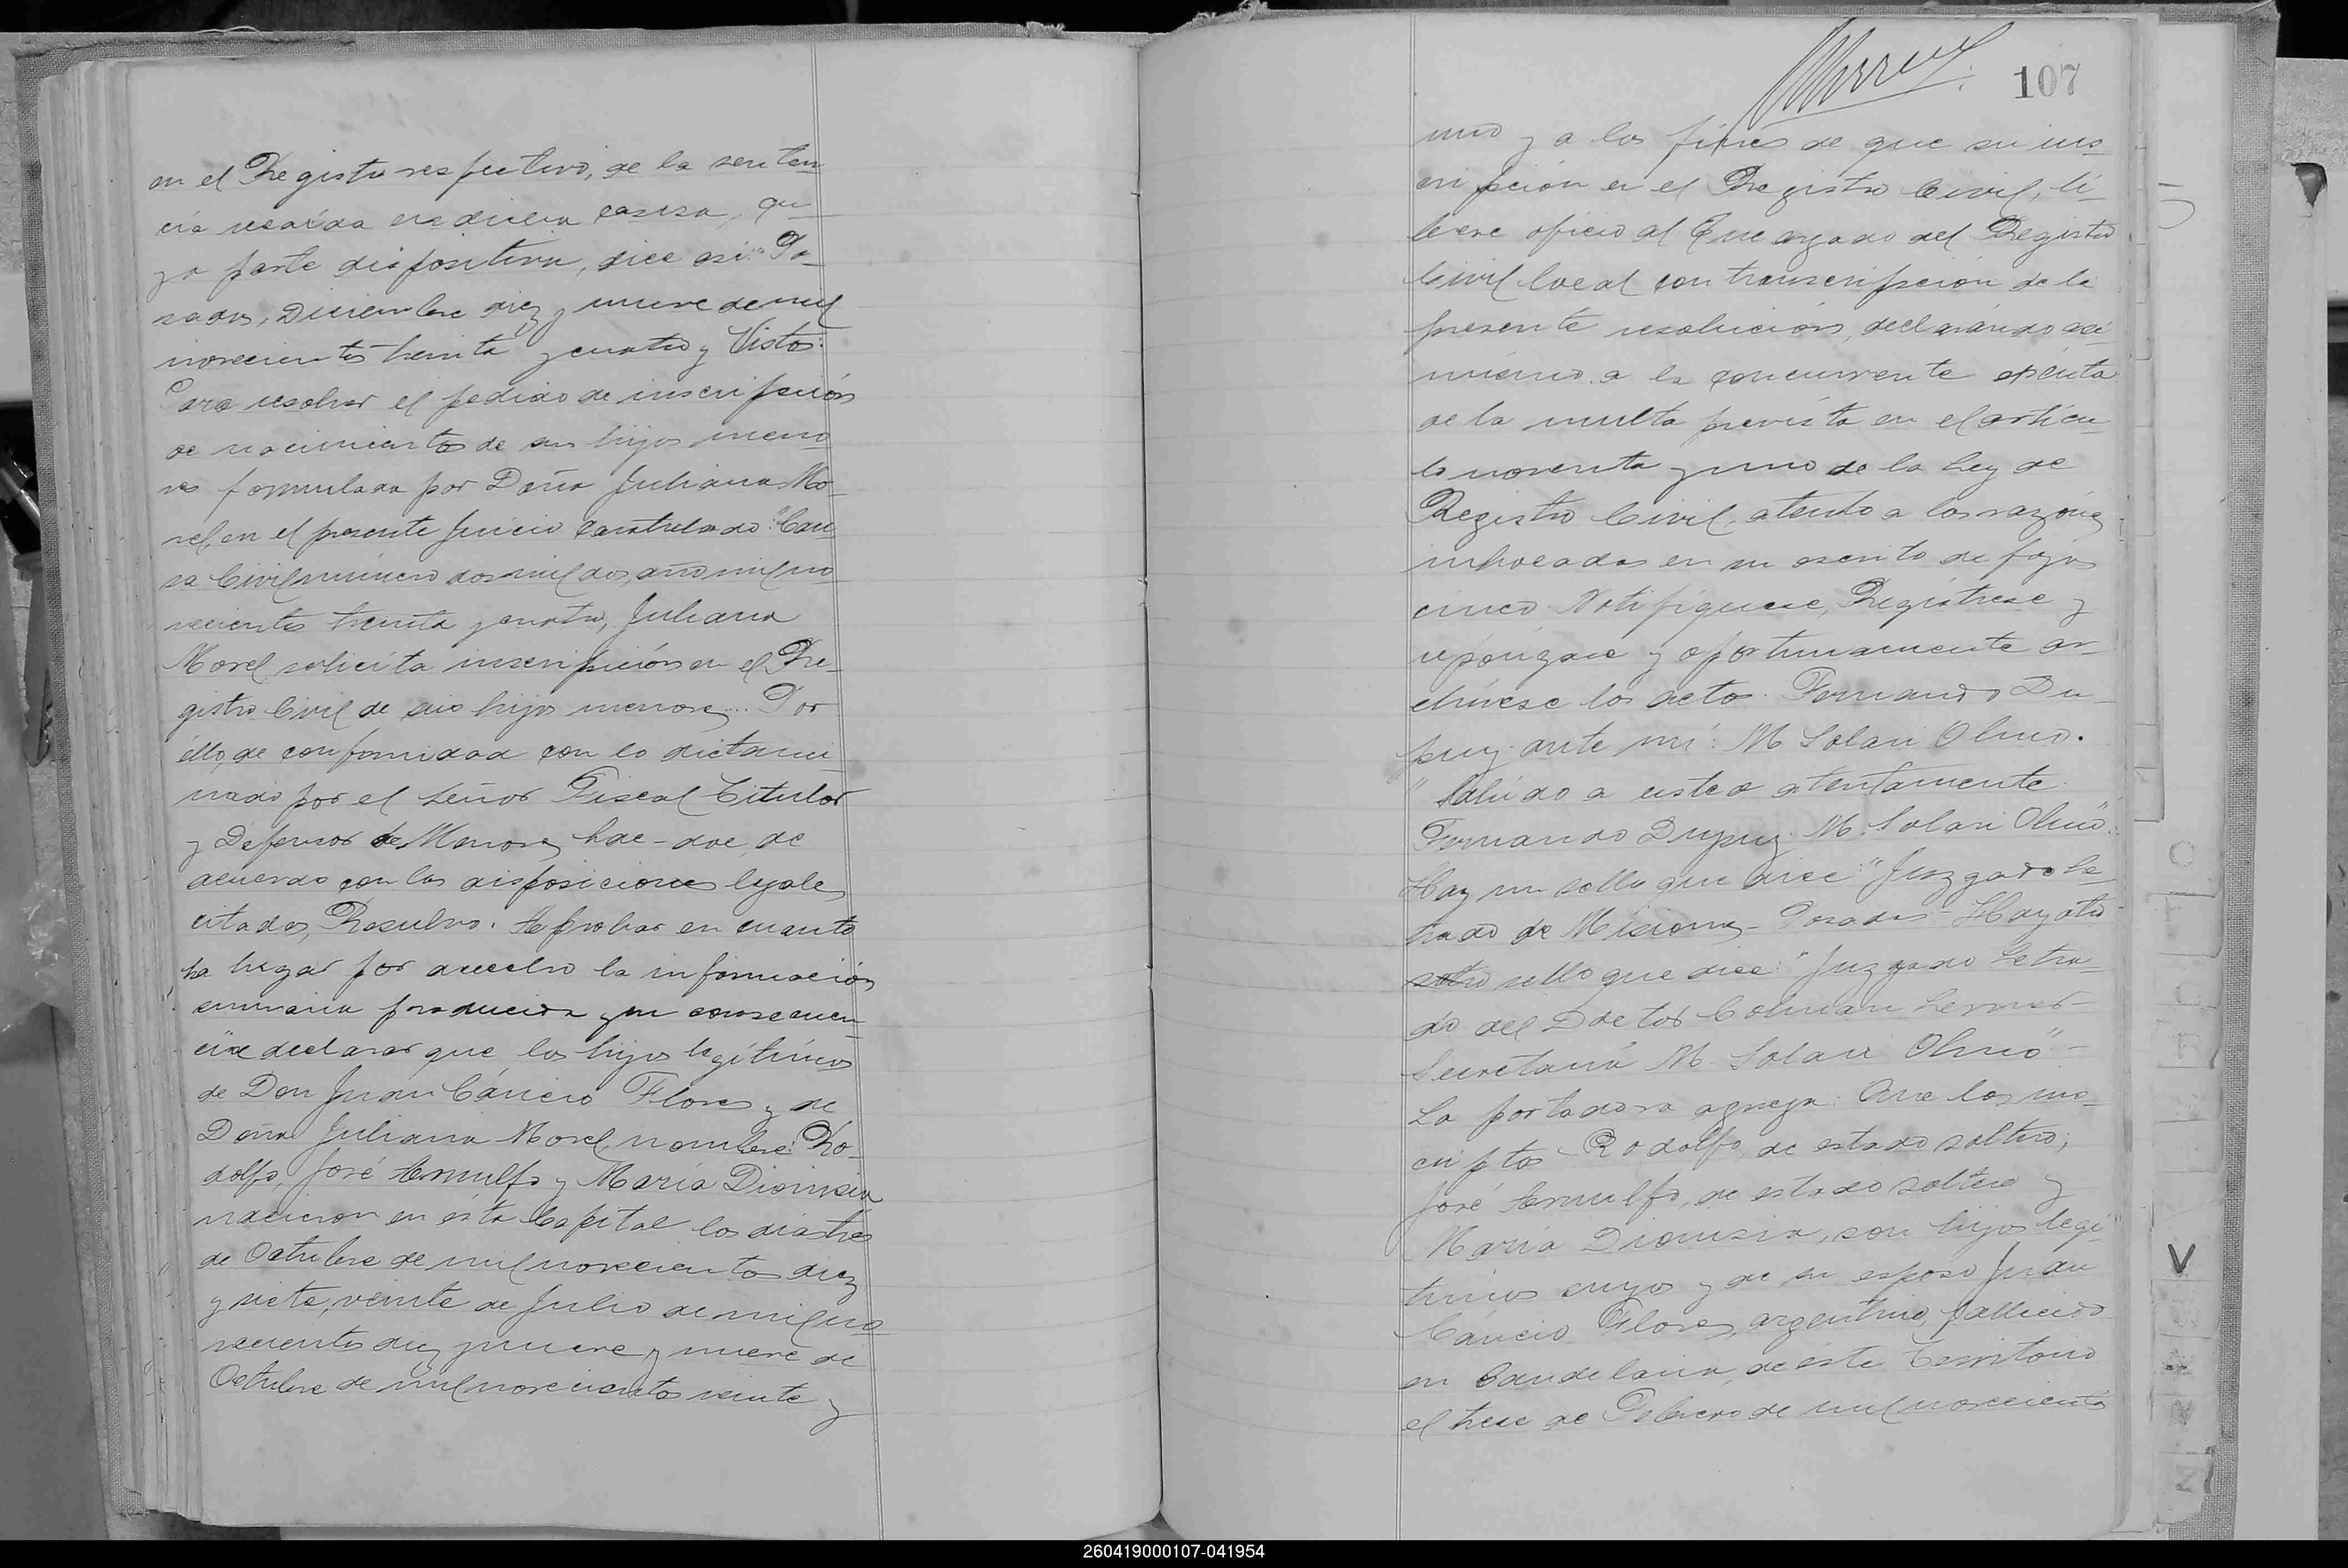 en el Registro respectivo, de la senten-
cia recaída en dicha causa, cu-
ya parte dispositiva, dice así: "Po-
sadas, Diciembre diez y nueve de mil
novecientos treinta y cuatro y Vistos:
Para resolver el pedido de inscripción
de nacimientos de sus hijos meno
res formulada por Doña Juliana Mo-
rel, en el presente juicio caratulado: "Cau
sa Civil número dos mil dos, año mil no
vecientos treinta y cuatro, Juliana
Morel solicita inscripción en el Re-
gistro Civil de sus hijos menores... Por
éllo, de conformidad con lo dictami-
nado por el Señor Fiscal Titular
y Defensor de Menores had-doc, de
acuerdo con las disposiciones legales
citadas, Resuelvo: Aprobar en cuanto
ha lugar por derecho la información
sumaria producida y en consecuen-
cia declarar que los hijos legítimos
de Don Juan Cáncio Flores y de
Doña Juliana Morel, nombres: Ro-
dolfo, José Arnulfo y María Dionisia
nacieron en ésta Capital los días tres
de Octubre de mil novecientos diez
y siete, veinte de Julio de mil no-
vecientos diez y nueve y nueve de
Octubre de mil novecientos veinte y
107
uno y a los fines de que su ins-
cripción en el Registro Civil, lí-
brese oficio al Encargado del Registro
Civil local con transcripción de la
presente resolución, declarando así
mismo a la concurrente exenta
de la multa prevista en el artícu-
lo noventa y uno de la Ley de
Registro Civil, atento a las razones
invocadas en su escrito de fojas
cinco. Notifíquese, Regístrese y
repóngase y oportunamente ar-
chívese los autos. Fernando Du-
puy. ante mí: M. Solari Olmo.
" Saludo a usted atentamente
Fernando Dupuy. M. Solari Olmo".
Hay un sello que dice: "Juzgado Le-
trado de Misiones - Posadas - Hay otro
sello que dice: "Juzgado Letra-
do del Doctor Colman Lerner -
Secretaría M. Solari Olmo" -
La portadora agrega: Que los ins-
criptos Rodolfo, de estado soltero;
José Arnulfo, de estado soltero y
María Dionisia, son hijos legí-
timos suyos y de su esposo Juan
Cáncio Flores, argentino, fallecido
en Candelaria, de éste Territorio
el trece de Febrero de mil novecientos
V
260419000107-041954